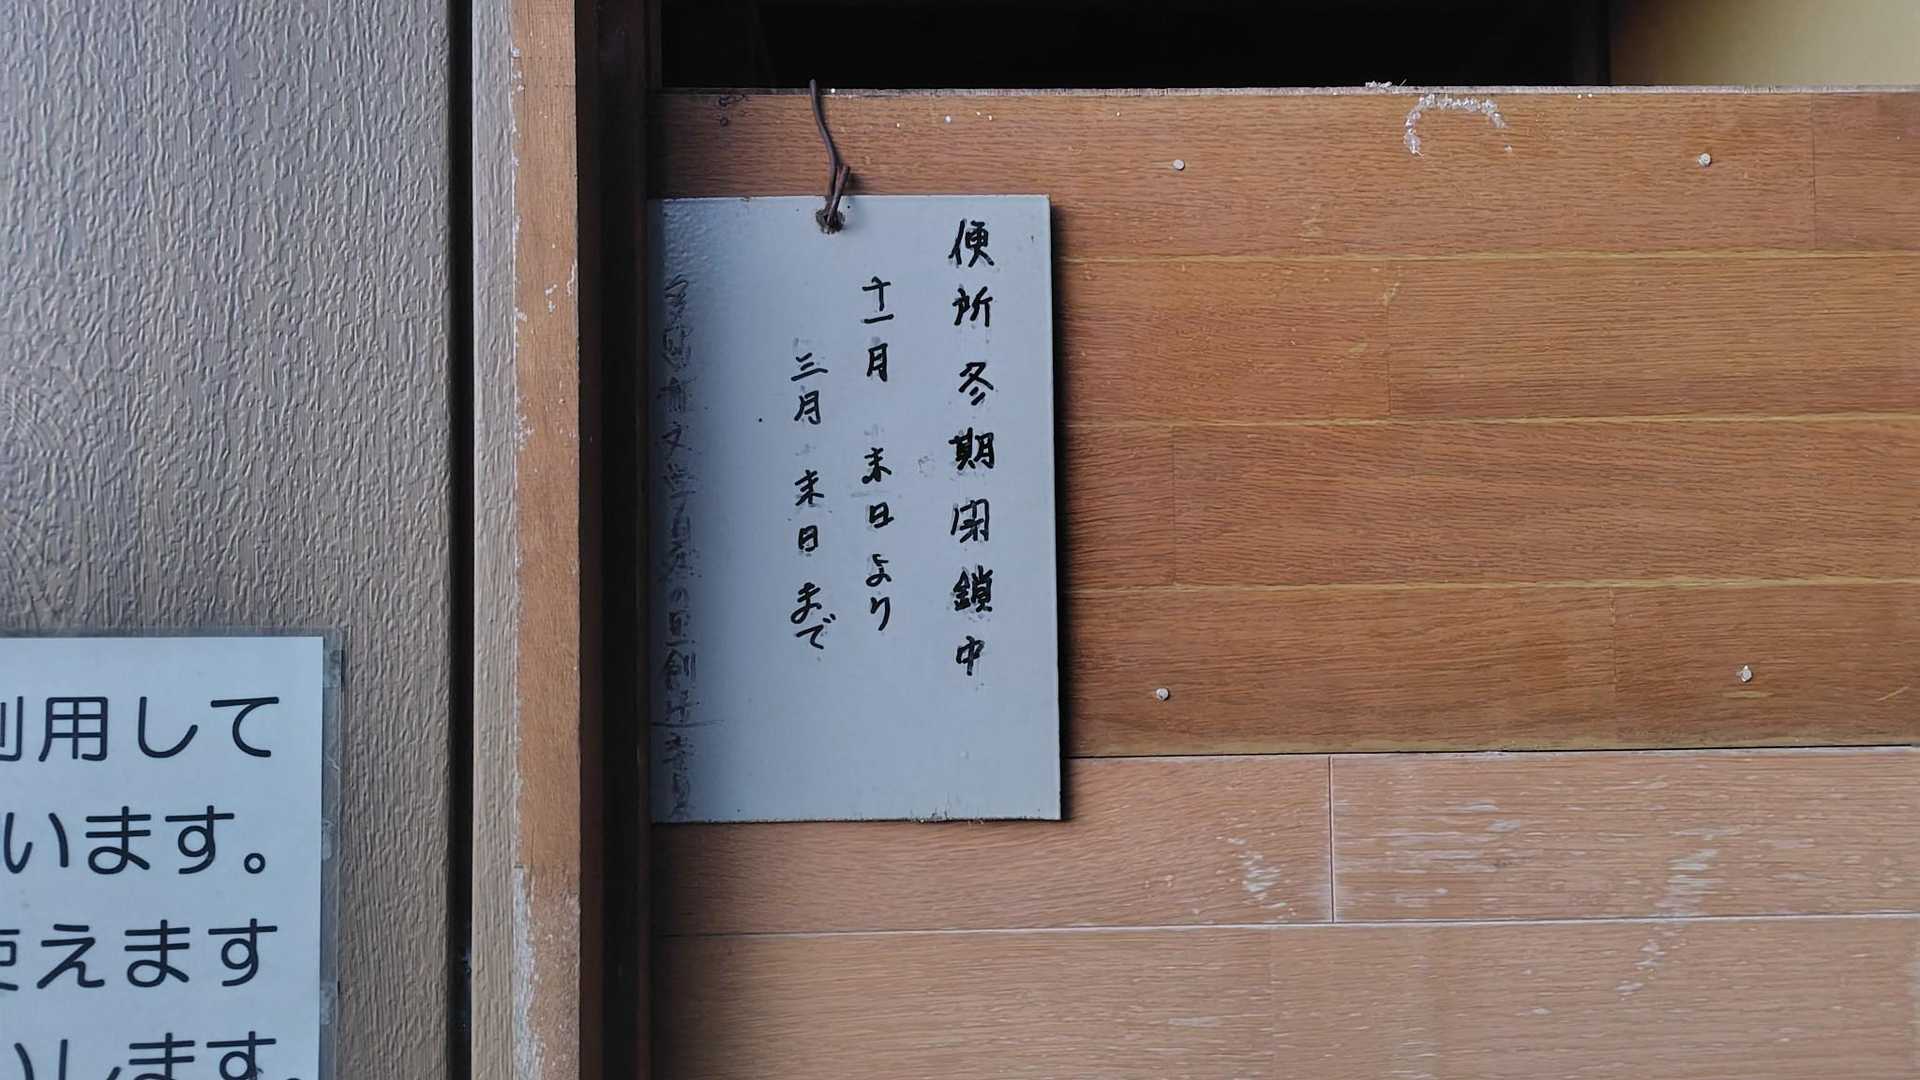 便所冬期閉鎖中
十一月末日より
三月末日まで
利用して
います。
使えます
いします。